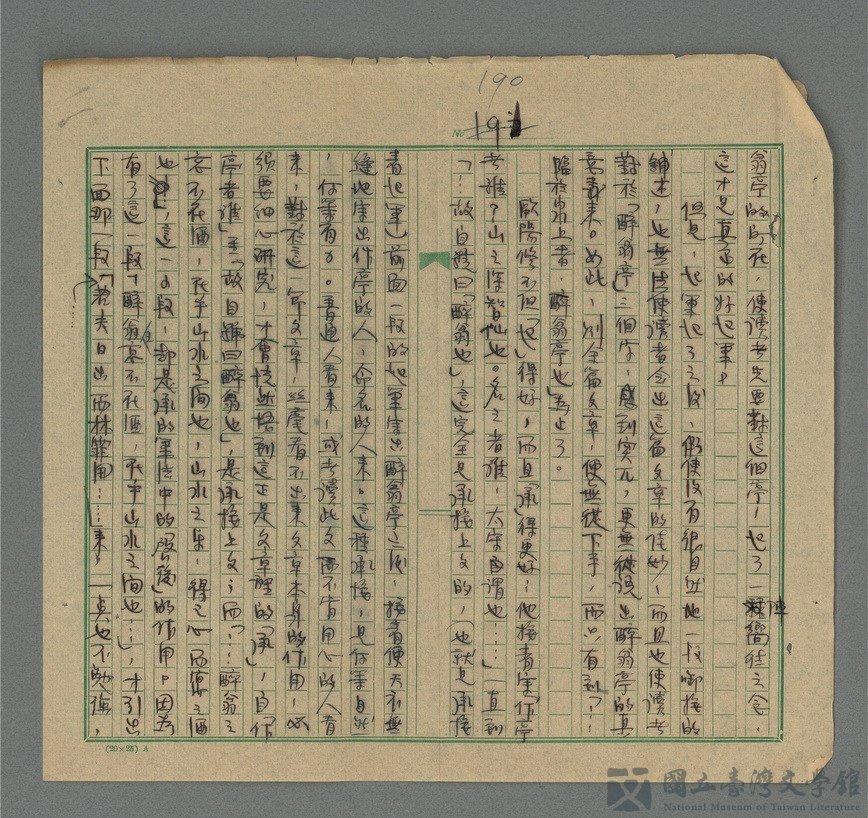 190
No
翁亭的所在，使讀者先要對這個亭子起了一種嚮往之念，
這才是真正的好起筆。
但是，起筆起了之後，假使沒有很自然地一段啣接的
舖述，也無法使讀者念出這篇文章的佳妙，而且也使讀者
對於「醉翁亭」三個字，感到突兀，更無從說出醉翁亭的真
意義來。如此，則全篇文章，便無從下手，而只有到「…
臨於泉上者，醉翁亭也」為止了。
歐陽修不但「起」得好，而且「承」得更好。他接着寫「作亭
者誰？山之僧智仙也。名之者誰，太守自謂也……」一直到
「…故自號曰「醉翁也」，這完全是承接上文的，也就是承接
着起筆前面一段的起筆寫出醉翁亭之後，接着便天衣無
縫地寫出作亭的人，命名的人來。這種承接，是何等自然
，何等有力。普通人看來，或者讀此文而不肯用心的人看
來，對於這一節文章，絲毫看不出來文章本身的作用，必
須要細心研究，才會恍然悟到這正是文章裡的「承」，自「作
亭者誰」至「故自號曰醉翁也」，是承接上文，而「…醉翁之
意不在酒，在乎山水之間也，山水之樂，得之心而寓之酒
也」，這一小段，却是承的筆法中的「啓後」的作用。因為
有了這一段「醉翁之意不在酒，在乎山水之間也…」，才引出
下面那一段「若夫日出而林霏開……來，一點也不勉強，
(20×25) A
國立臺灣文學館
National Museum of Taiwan Literature